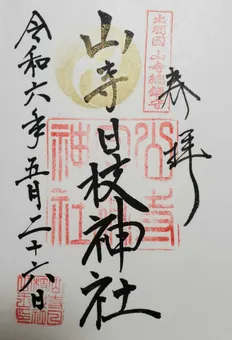 奉拝
出羽國山寺総鎮守
山寺日枝神社
令和六年五月二十六日